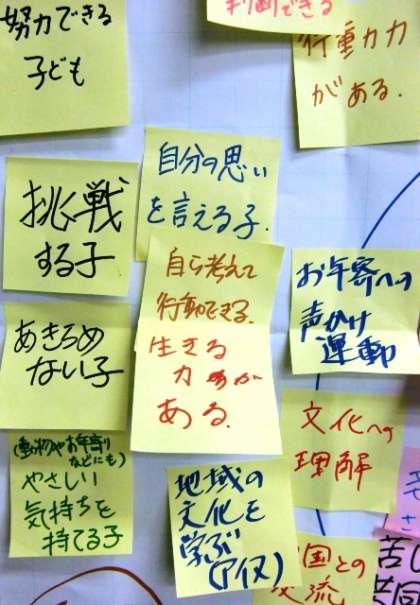 努力できる
子ども
判断できる
行動力
がある.
挑戦
する子
自分の思い
を言える子.
自ら考えて
行動できる.
生きる
力が
ある.
お年寄への
声かけ
運動
あきらめ
ない子
(動物やお年寄り
などにも)
やさしい
気持ちを
持てる子
文化への
理解
地域の
文化を
学ぶ
(アイヌ)
国との
交流
苦し
共同